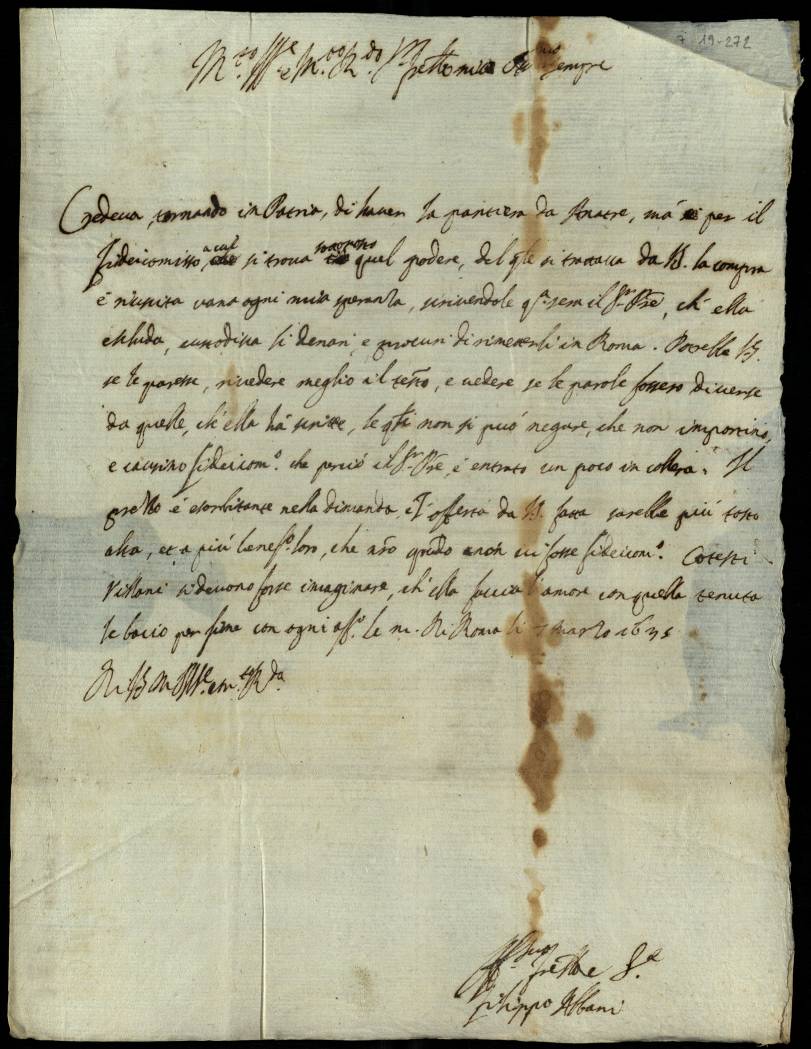 7-19-272
M.to Ill.re e M.to R.do S.r fratello mio Oss.mo sempre
Credeva, tornando in Patria, di haver la pariera da Anatre, ma per il
fideicomisso, a cui si trova sottoposto quel podere, del q.le si trattava da V.S. la compra
è riuscita vana ogni mia speranza, scrivendole q.a sera il S.r Pre, ch' ella
escluda, custodisca li denari, e procuri di rimetterli in Roma. Potrebbe V.S.
se le paresse, rivedere meglio il testo, e vedere se le parole fossero diverse
da quelle, ch' ella hà scritte, le q.li non si può negare, che non importino,
e causino fideicom.o che perciò il S.r Pre, è entrato un poco in collera. Il
prezzo è esorbitante nella dimanda e l' offerta da V.S. fatta sarebbe più tosto
alta, et a più benef.o loro, che nr̃o quãdo anch vi fosse fideicom.o. Cotesti
Villani si devono forse imaginare, ch' ella faccia l' amore con quella tenuta
le bacio per fine con ogni aff.o le m. Di Roma li 7 Marzo 1635
Di V.S. M. Ill.re et m.to R.da
Aff.mo fratello e S.re
Filippo Albani